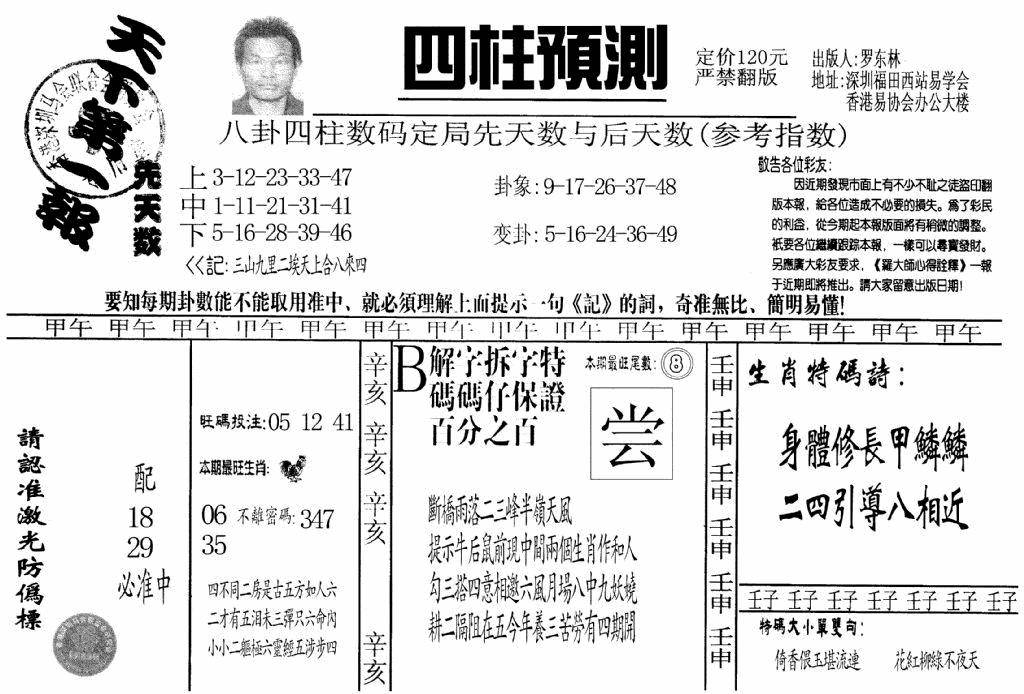 天下第一報
四柱預測
定价120元
严禁翻版
出版人:罗东林
地址:深圳福田西站易学会
香港易协会办公大楼
八卦四柱数码定局先天数与后天数(参考指数)
先天数
上 3-12-23-33-47
中 1-11-21-31-41
下 5-16-28-39-46
<<記:三山九里二埃天上合八來四
卦象:9-17-26-37-48
变卦:5-16-24-36-49
敬告各位彩友:
因近期發現市面上有不少不耻之徒盜印翻
版本報，給各位造成不必要的損失。爲了彩民
的利益，從今期起本報版面將有稍微的調整。
衹要各位繼續跟踪本報，一樣可以尋寶發財。
另應廣大彩友要求，《羅大師心得詮釋》一報
于近期即將推出。請大家留意出版日期!
要知每期卦數能不能取用准中、就必須理解上面提示一句《記》的詞，奇准無比、簡明易懂!
甲午 甲午 甲午 甲午 甲午 甲午 甲午 甲午 甲午 甲午 甲午 甲午 甲午 甲午 甲午
請認准激光防僞標
配
18
29
必准中
旺碼投注:05 12 41
本期最旺生肖:
06 不離密碼:347
35
四不同二房是古五方如人六
二才有五泪未三彈只六命內
小小二軀極六靈經五涉步四
辛亥 辛亥 辛亥 辛亥
B解字拆字特
碼碼仔保證
百分之百
本期最旺尾數:8
尝
斷橋雨落二三峰半嶺天風
提示牛后鼠前現中間兩個生肖作和人
勾三搭四意相邀六風月場八中九妖嬈
耕二隔阻在五今年養三苦勞有四期開
壬申 壬申 壬申 壬申 壬申 壬申
生肖特碼詩:
身體修長甲鱗鱗
二四引導八相近
壬子 壬子 壬子 壬子 壬子 壬子 壬子
特碼大小單雙句:
倚香偎玉堪流連 花紅柳綠不夜天